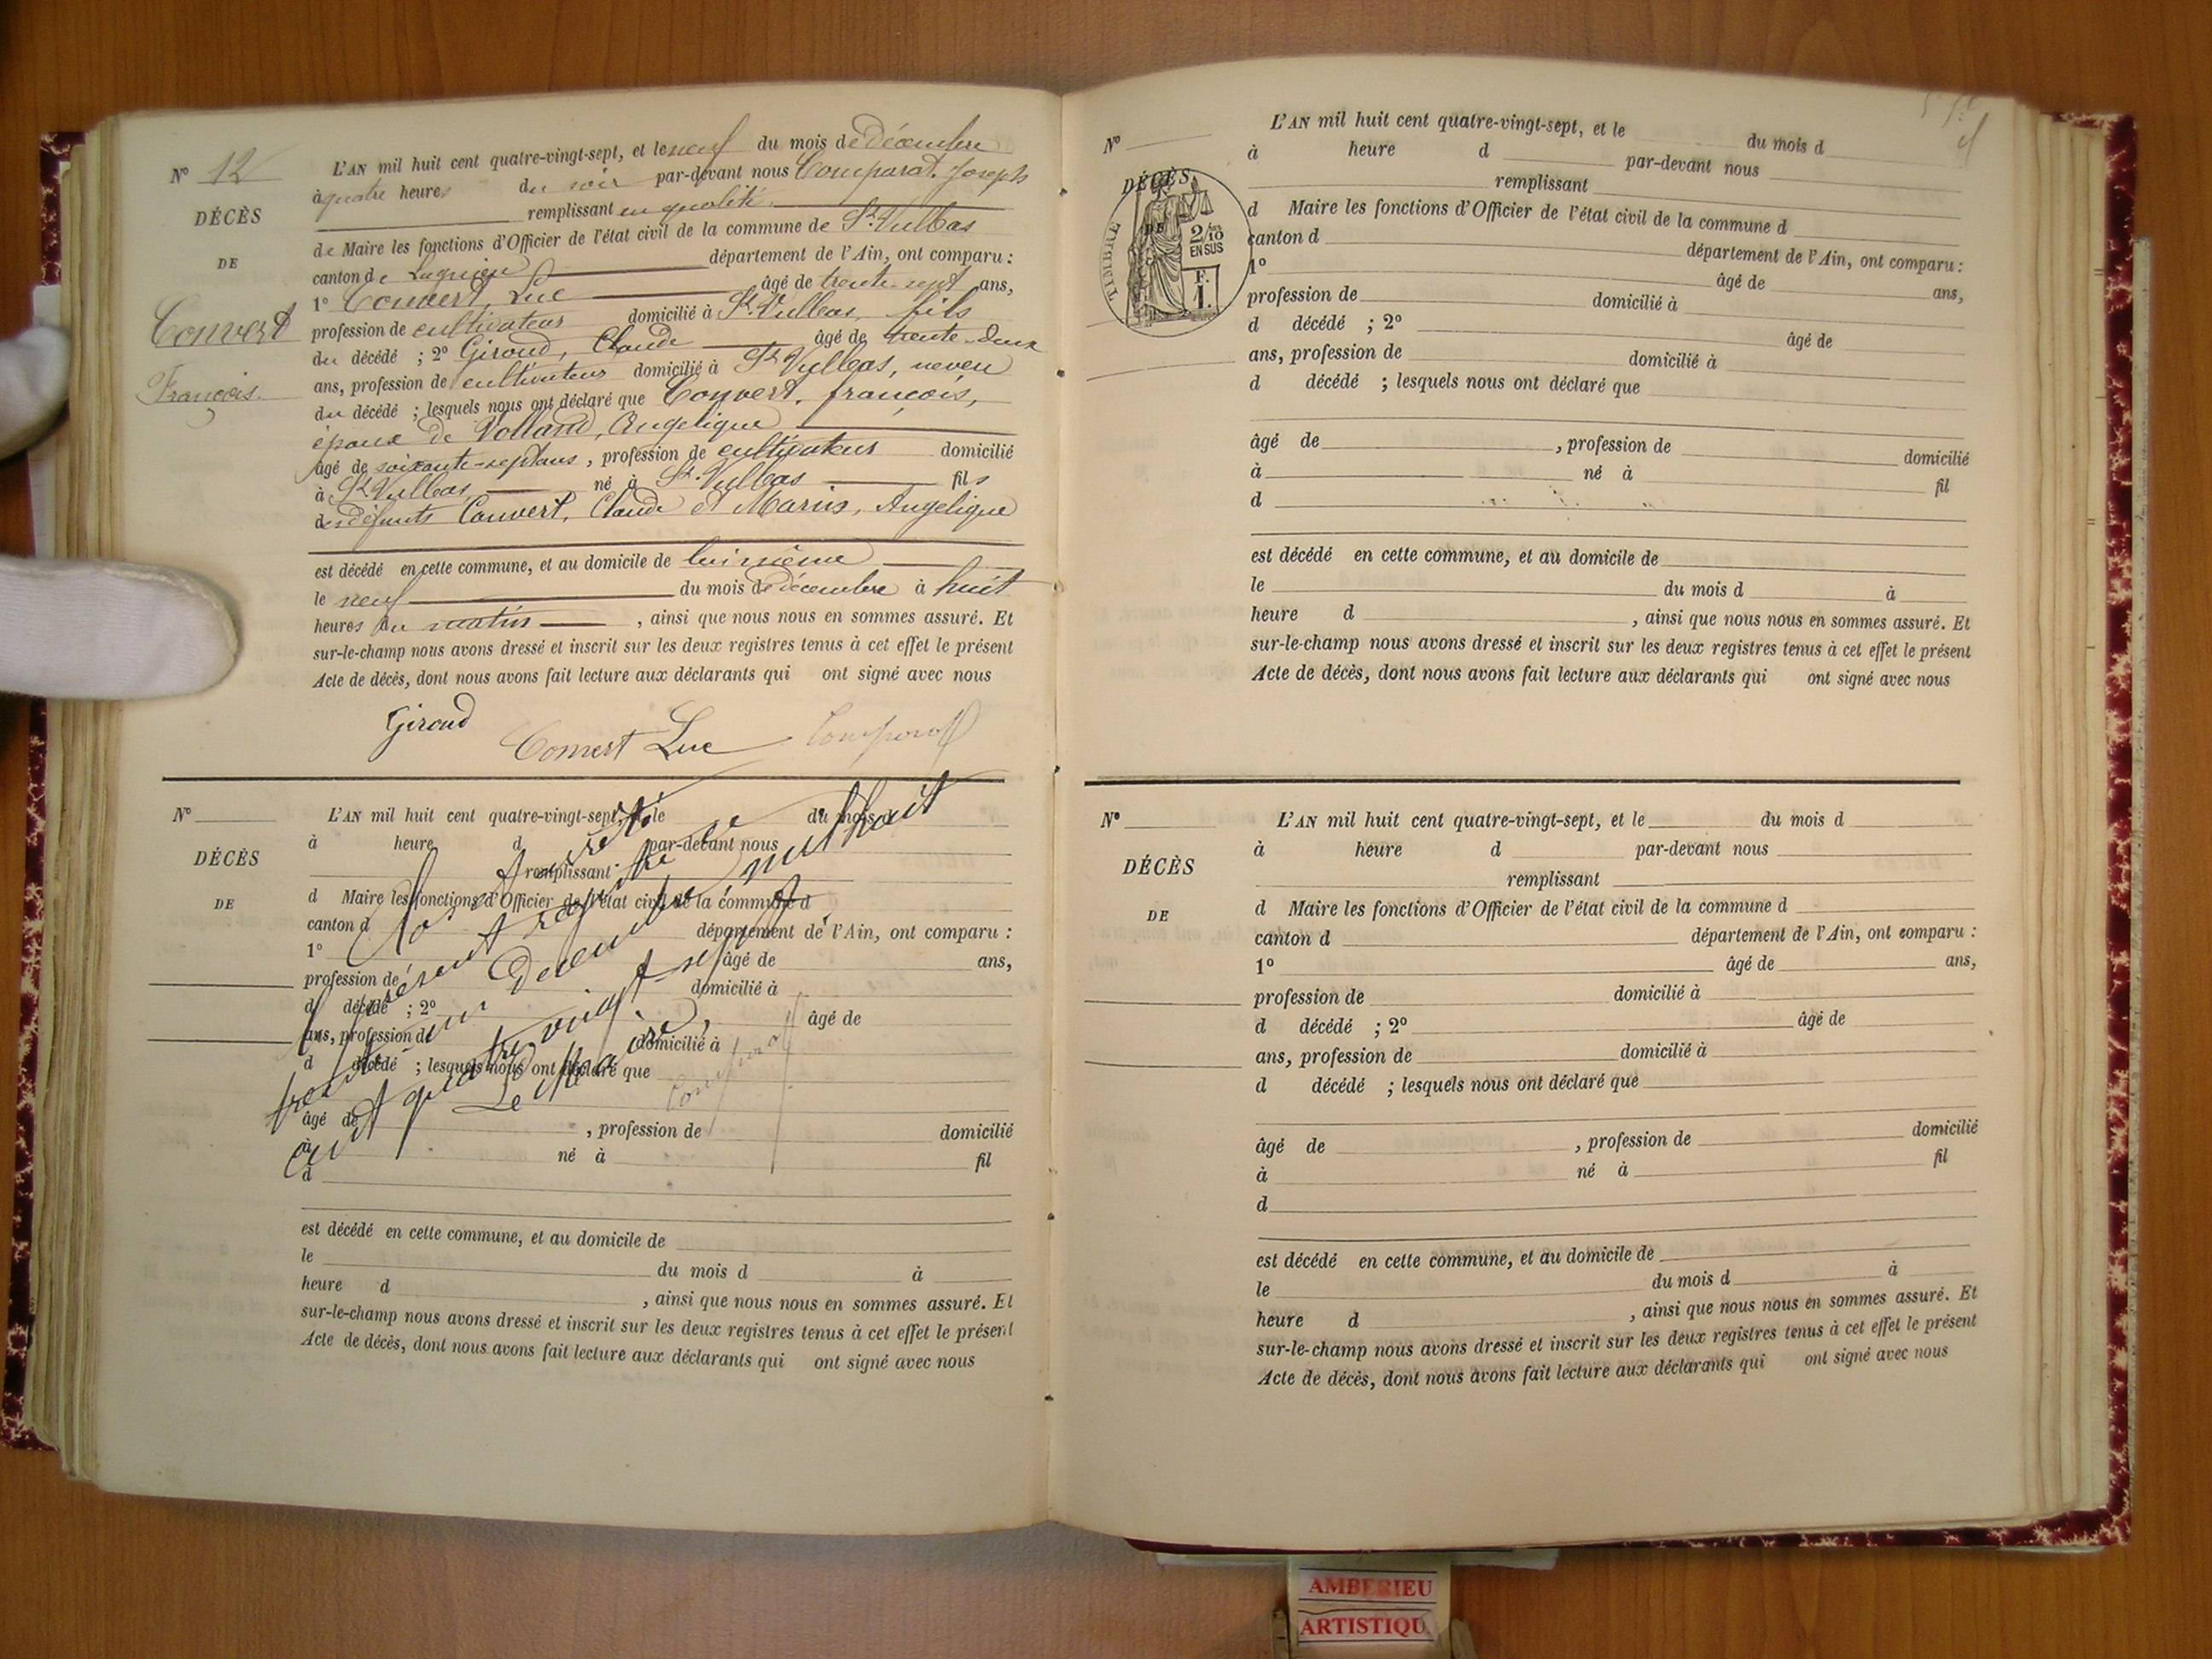 N° 12
DÉCÈS
DE
Convert
François.
L'AN mil huit cent quatre-vingt-sept, et le neuf du mois de décembre
à quatre heures du soir par-devant nous Comparat, Joseph
remplissant en qualité
de Maire les fonctions d'Officier de l'état civil de la commune de St Vulbas
canton de Lagnieu département de l'Ain, ont comparu :
1° Convert, Luc âgé de trente-sept ans,
profession de cultivateur domicilié à St Vulbas, fils
du décédé ; 2° Giroud, Claude âgé de trente-deux
ans, profession de cultivateur domicilié à St Vulbas, neveu
du décédé ; lesquels nous ont déclaré que Convert, françois,
époux de Volland, Angelique
âgé de soixante-sept ans, profession de cultivateur domicilié
à St Vulbas né à St Vulbas fils
des défunts Convert, Claude et Marin, Angelique
est décédé en cette commune, et au domicile de lui même
le neuf du mois de décembre à huit
heures du matin, ainsi que nous nous en sommes assuré. Et
sur-le-champ nous avons dressé et inscrit sur les deux registres tenus à cet effet le présent
Acte de décès, dont nous avons fait lecture aux déclarants qui ont signé avec nous
Giroud
Convert Luc Comparat
N°
DÉCÈS
DE
L'AN mil huit cent quatre-vingt-sept, et le du mois d
à heure d par-devant nous
remplissant
d Maire les fonctions d'Officier de l'état civil de la commune d
canton d département de l'Ain, ont comparu :
1° âgé de ans,
profession de domicilié à
d décédé ; 2° âgé de
ans, profession de domicilié à
d décédé ; lesquels nous ont déclaré que
âgé de , profession de domicilié
à né à fil
d
est décédé en cette commune, et au domicile de
le du mois d à
heure d , ainsi que nous nous en sommes assuré. Et
sur-le-champ nous avons dressé et inscrit sur les deux registres tenus à cet effet le présent
Acte de décès, dont nous avons fait lecture aux déclarants qui ont signé avec nous
Clos et arrêté
le présent registre le
trente-un Decembre mil huit
cent quatre vingt-sept.
Le Maire,
Comparat
N°
DÉCÈS
DE
TIMBRE
2/10 EN SUS
F. 1.
L'AN mil huit cent quatre-vingt-sept, et le du mois d
à heure d par-devant nous
remplissant
d Maire les fonctions d'Officier de l'état civil de la commune d
canton d département de l'Ain, ont comparu :
1° âgé de ans,
profession de domicilié à
d décédé ; 2° âgé de
ans, profession de domicilié à
d décédé ; lesquels nous ont déclaré que
âgé de , profession de domicilié
à né à fil
d
est décédé en cette commune, et au domicile de
le du mois d à
heure d , ainsi que nous nous en sommes assuré. Et
sur-le-champ nous avons dressé et inscrit sur les deux registres tenus à cet effet le présent
Acte de décès, dont nous avons fait lecture aux déclarants qui ont signé avec nous
N°
DÉCÈS
DE
L'AN mil huit cent quatre-vingt-sept, et le du mois d
à heure d par-devant nous
remplissant
d Maire les fonctions d'Officier de l'état civil de la commune d
canton d département de l'Ain, ont comparu :
1° âgé de ans,
profession de domicilié à
d décédé ; 2° âgé de
ans, profession de domicilié à
d décédé ; lesquels nous ont déclaré que
âgé de , profession de domicilié
à né à fil
d
est décédé en cette commune, et au domicile de
le du mois d à
heure d , ainsi que nous nous en sommes assuré. Et
sur-le-champ nous avons dressé et inscrit sur les deux registres tenus à cet effet le présent
Acte de décès, dont nous avons fait lecture aux déclarants qui ont signé avec nous
AMBERIEU
ARTISTIQU